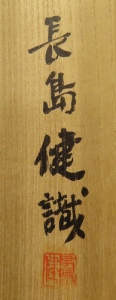 長島健識